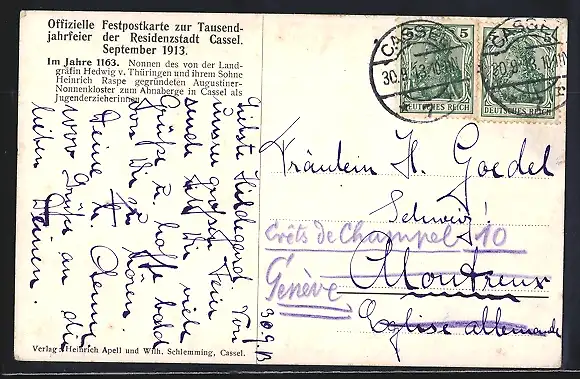 Offizielle Festpostkarte zur Tausend-
jahrfeier der Residenzstadt Cassel.
September 1913.
Im Jahre 1163. Nonnen des von der Land-
gräfin Hedwig v. Thüringen und ihrem Sohne
Heinrich Raspe gegründeten Augustiner-
Nonnenkloster zum Ahnaberge in Cassel als
Jugenderzieherinnen
Liebste Hildegard
unsrer großen Feier
sende Dir viele
Grüße u. hoffe bald
von Dir zu hören.
Deine H.
Grüße an die
lieben Deinen.
30.9.13
Verlag: Heinrich Apell und Wilh. Schlemming, Cassel.
CASSEL
30.9.13
5
DEUTSCHES REICH
CASSEL
30.9.13
DEUTSCHES REICH
Fräulein H. Goedel
Schweiz
Crêts de Champel 10
Genève
Montreux
Eglise allemande